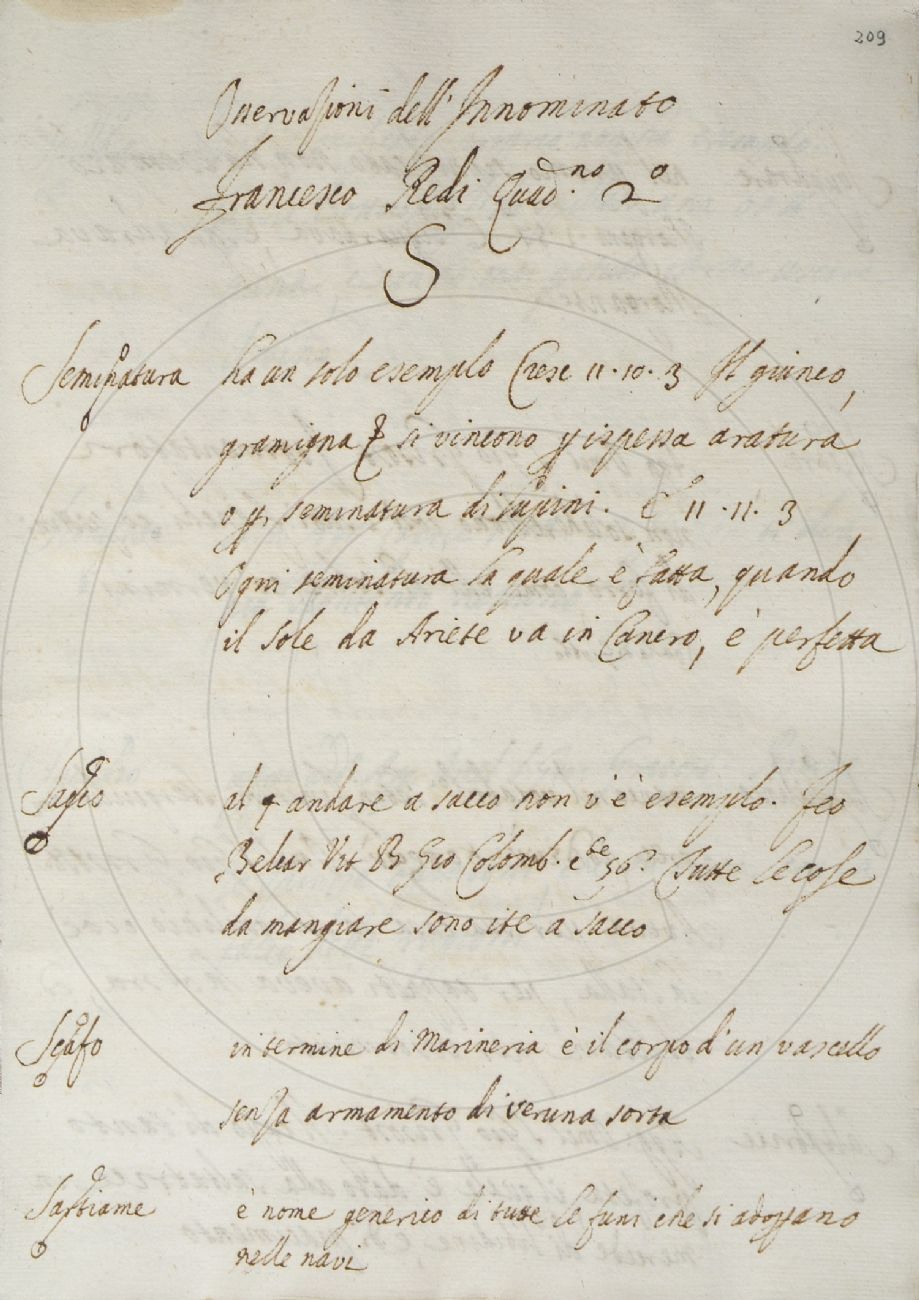 209
Osservazioni dell'Innominato
Francesco Redi Quad.no 2o
S
Seminatura ha un solo esemplo Cresc 11. 10. 3 Il giunco,
gramigna si vincono p ispessa aratura
o p seminatura di lupini. E 11. 11. 3
Ogni seminatura la quale è fatta, quando
il sole da Ariete va in Cancro, è perfetta
Sacco al andare a sacco non v'è esemplo. Feo
Belcar Vit B Gio Colomb. c 56. Tutte le cose
da mangiare sono ite a sacco
Scafo in termine di Marineria è il corpo d'un vascello
senza armamento di veruna sorta
Sartiame è nome generico di tutte le funi che si adoprano
nelle navi